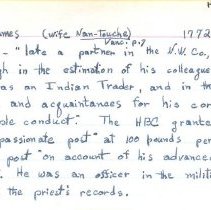 ames (wife Nan-Touche) 1772
Vanc: p.9
- "late a partner in the N.W. Co.,
gh in the estimation of his colleague
as an Indian Trader, and in th
and acquaintances for his cor
ble conduct." The HBC grante
passionate post" at 100 pounds per
post" on account of his advance
. He was an officer in the milit
the priest's records.